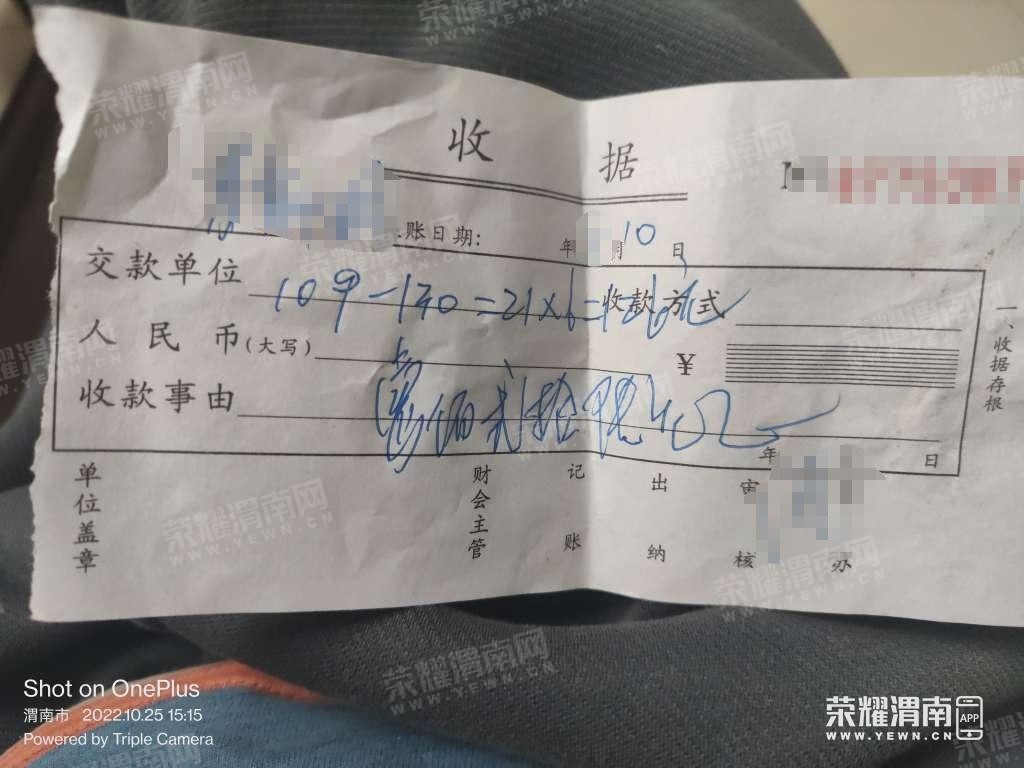 收 据
账日期: 年 月 10 日
交款单位 109-130=21×6=126元 收款方式
人民币(大写) ¥
收款事由 壹佰贰拾陆元
年 日
单位盖章 财会主管 记账 出纳 审核 办
一、收据存根
Shot on OnePlus
渭南市 2022.10.25 15:15
Powered by Triple Camera
荣耀渭南 APP
WWW.YEWN.CN
荣耀渭南网
WWW.YEWN.CN